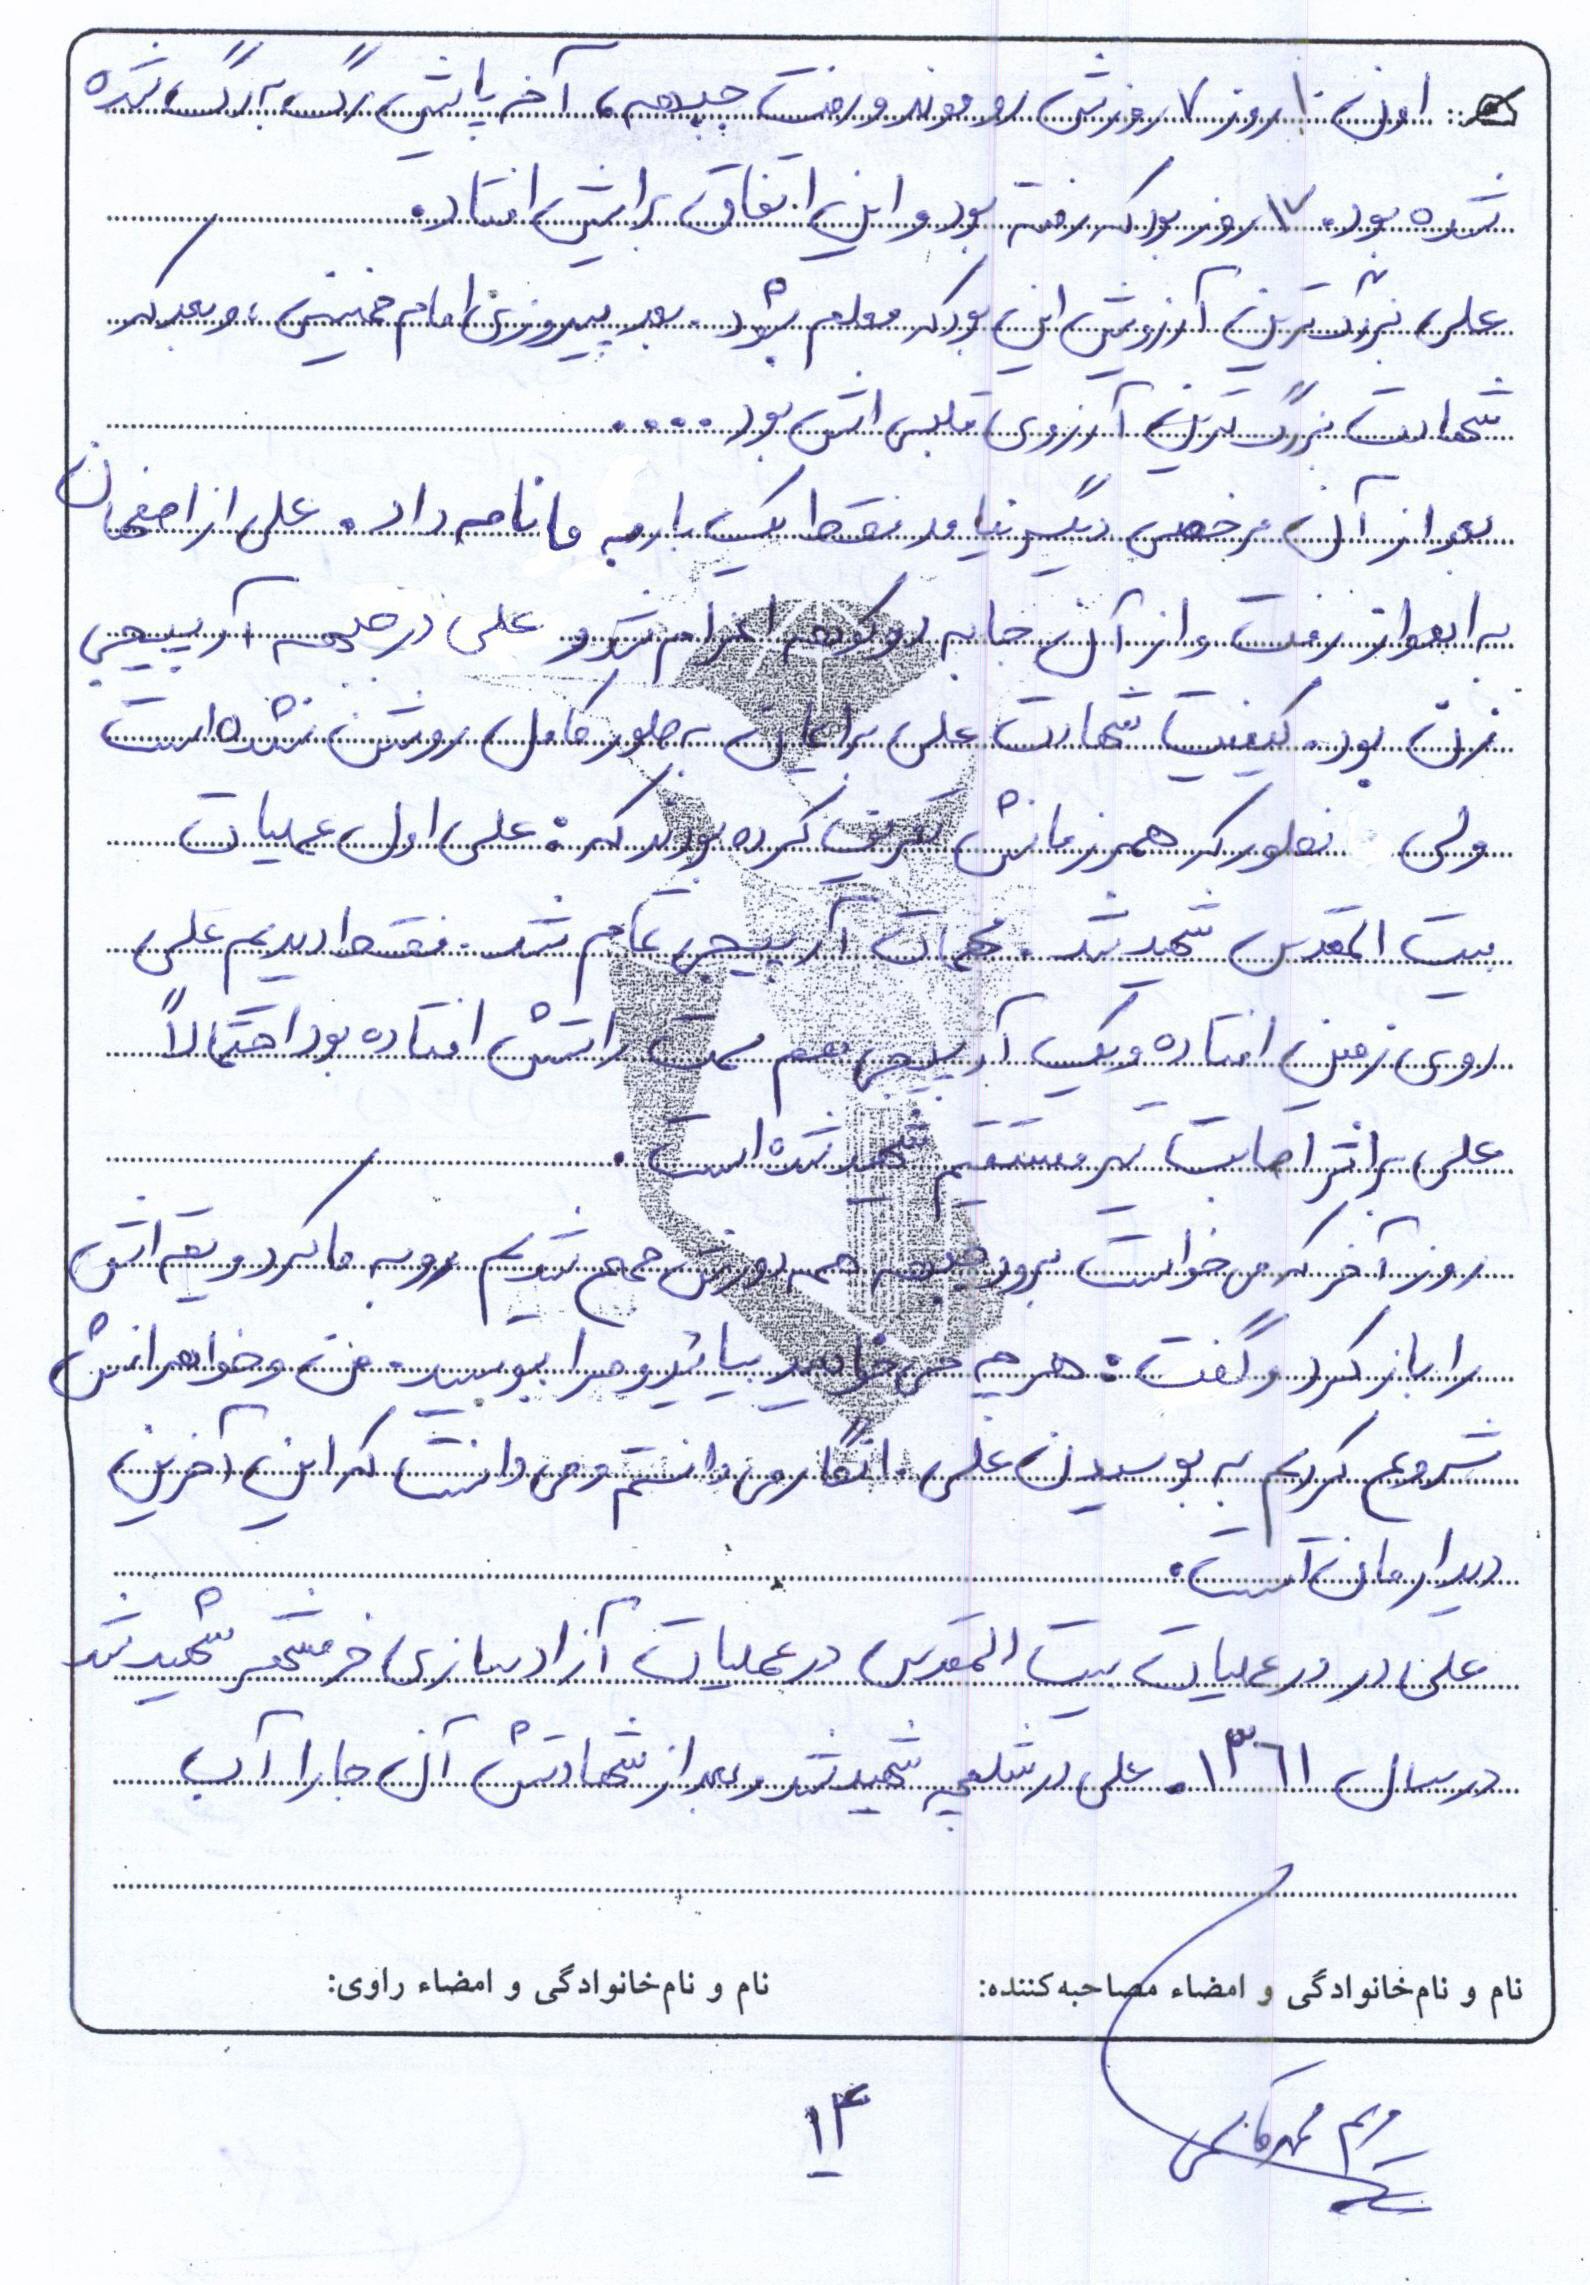 اون ۱۰ روز ۷ روزش رو موند و رفت جبهه، آخر پایش رگ به رگ شده
شده بود. ۱۷ روز بود که رفته بود و این اتفاق برایش افتاد.
علی بزرگ‌ترین آرزویش این بود که معلم بشود. بعد پیروزی امام خمینی، و بعد که
شهادت بزرگ‌ترین آرزوی قلبی اش بود....
بعد از آن مرخصی دیگر نیامد فقط یک بار به ما نامه داد. علی از اصفهان
به اهواز رفت و از آن جا به دوکوهه اعزام شد و علی در جبهه آرپیجی
زن بود. کیفیت شهادت علی برایمان به طور کامل روشن نشده است
ولی نطور که همرزمانش تعریف کرده بودند که: علی اول عملیات
بیت المقدس شهید شد. مهمات آرپیجی تمام شد. فقط دیدیم علی
روی زمین افتاده و یک آرپیجی هم سمت راتش افتاده بود احتمالاً
علی بر اثر اصابت تیر مستقیم شهید شده است.
روز آخر که می خواست برود جبهه همه دورش جمع شدیم رو به ما کرد و یقه اش
را باز کرد و گفت: هر چه می خواهید بیائید و مرا ببوسید. من و خواهرانش
شروع کردیم به بوسیدن علی. انگار می دانستم و می دانست که این آخرین
دیدارمان است.
علی در در عملیات بیت المقدس در عملیات آزاد سازی خرمشهر شهید شد
در سال ۱۳۶۱. علی در شلمچه شهید شد و بعد از شهادتش آن جا را آب
نام و نام‌خانوادگی و امضاء مصاحبه‌کننده: نام و نام‌خانوادگی و امضاء راوی:
مریم
۱۴